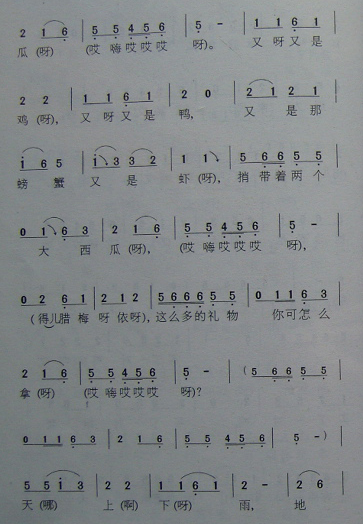 2 1 6 | 5 5 4 5 6 | 5 - | 1 1 6 1 |
瓜(呀) (哎嗨哎哎哎 呀)。 又呀又是
2 2 | 1 1 6 1 | 2 0 | 2 1 2 1 |
鸡(呀), 又呀又是 鸭, 又 是那
i 6 5 | i 3 3 2 | 1 1 | 5 6 6 5 5 |
螃 蟹 又 是 虾(呀), 捎带着两个
0 1 6 3 | 2 1 6 | 5 5 4 5 6 | 5 - |
大 西 瓜(呀), (哎嗨哎哎哎 呀),
0 2 6 1 | 2 1 2 | 5 6 6 6 5 5 | 0 1 1 6 3 |
(得儿腊 梅 呀 依呀), 这么多的礼 物 你可怎么
2 1 6 | 5 5 4 5 6 | 5 - | (5 6 6 5 5 |
拿(呀) (哎嗨哎哎哎 呀)?
0 1 1 6 3 | 2 1 6 | 5 5 4 5 6 | 5 -) |
5 5 i 3 | 2 2 | 1 2 1 6 1 | 2 - | 2 6 |
天(哪) 上(啊) 下(呀) 雨, 地